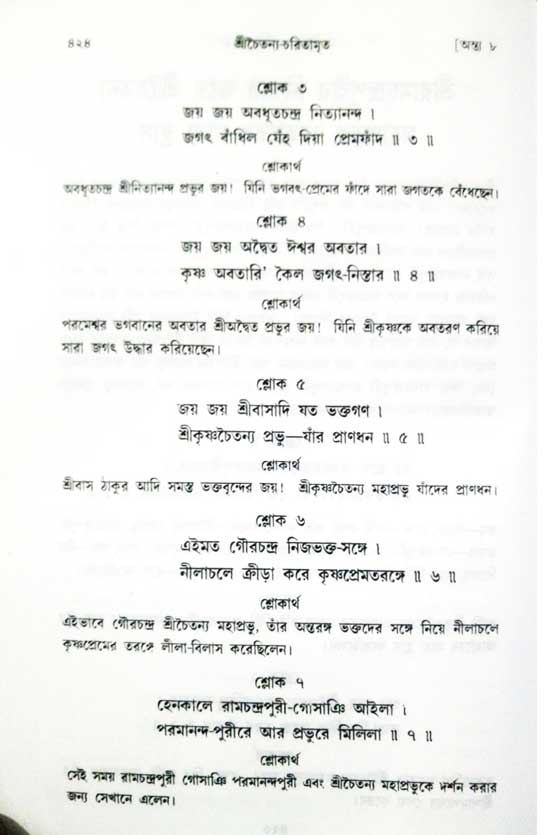 ৪২৪ শ্রীচৈতন্য-চরিতামৃত [অন্ত্য ৮
শ্লোক ৩
জয় জয় অবধূতচন্দ্র নিত্যানন্দ ।
জগৎ বাঁধিল যেঁহ দিয়া প্রেমফাঁদ ॥ ৩ ॥
শ্লোকার্থ
অবধূতচন্দ্র শ্রীনিত্যানন্দ প্রভুর জয়! যিনি ভগবৎ-প্রেমের ফাঁদে সারা জগতকে বেঁধেছেন।
শ্লোক ৪
জয় জয় অদ্বৈত ঈশ্বর অবতার ।
কৃষ্ণ অবতারি' কৈল জগৎ-নিস্তার ॥ ৪ ॥
শ্লোকার্থ
পরমেশ্বর ভগবানের অবতার শ্রীঅদ্বৈত প্রভুর জয়! যিনি শ্রীকৃষ্ণকে অবতরণ করিয়ে
সারা জগৎ উদ্ধার করিয়েছেন।
শ্লোক ৫
জয় জয় শ্রীবাসাদি যত ভক্তগণ ।
শ্রীকৃষ্ণচৈতন্য প্রভু—যাঁর প্রাণধন ॥ ৫ ॥
শ্লোকার্থ
শ্রীবাস ঠাকুর আদি সমস্ত ভক্তবৃন্দের জয়! শ্রীকৃষ্ণচৈতন্য মহাপ্রভু যাঁদের প্রাণধন।
শ্লোক ৬
এইমত গৌরচন্দ্র নিজভক্ত-সঙ্গে ।
নীলাচলে ক্রীড়া করে কৃষ্ণপ্রেমতরঙ্গে ॥ ৬ ॥
শ্লোকার্থ
এইভাবে গৌরচন্দ্র শ্রীচৈতন্য মহাপ্রভু, তাঁর অন্তরঙ্গ ভক্তদের সঙ্গে নিয়ে নীলাচলে
কৃষ্ণপ্রেমের তরঙ্গে লীলা-বিলাস করেছিলেন।
শ্লোক ৭
হেনকালে রামচন্দ্রপুরী-গোসাঞি আইলা ।
পরমানন্দ-পুরীরে আর প্রভুরে মিলিলা ॥ ৭ ॥
শ্লোকার্থ
সেই সময় রামচন্দ্রপুরী গোসাঞি পরমানন্দপুরী এবং শ্রীচৈতন্য মহাপ্রভুকে দর্শন করার
জন্য সেখানে এলেন।